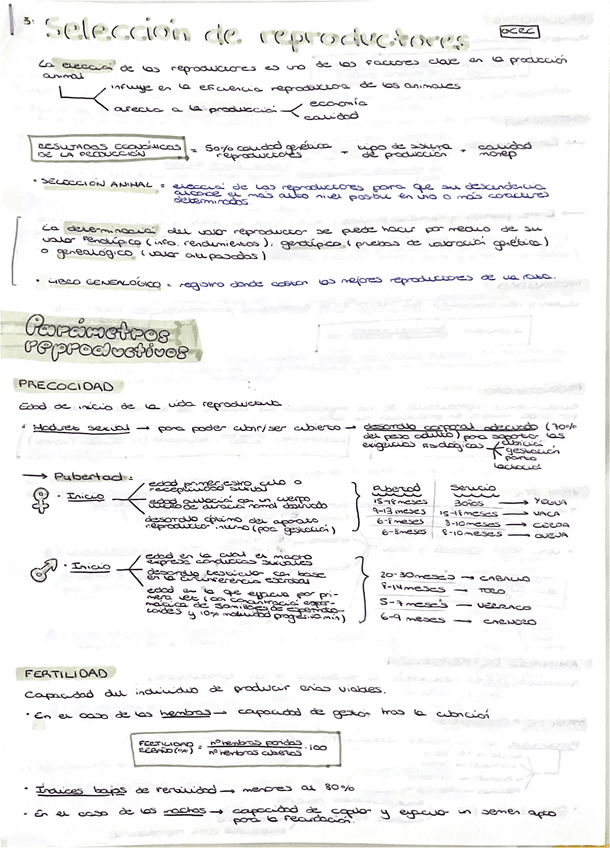 3. Selección de reproductores
OCRC
La elección de los reproductores es uno de los factores clave en la producción
animal
influye en la eficiencia reproductora de los animales
afecta a la producción economía
calidad
RESULTADOS ECONÓMICOS DE LA PRODUCCIÓN = 50% calidad genética reproductores + tipo de sistema de producción + calidad manejo
· SELECCIÓN ANIMAL = elección de los reproductores para que su descendencia
alcance el más alto nivel posible en uno o más caracteres
determinados
La determinación del valor reproductor se puede hacer por medio de su
valor fenotípico (info. rendimientos), genotípico (pruebas de valoración genética)
o genealógico (valor antepasados)
· LIBRO GENEALÓGICO = registro donde están los mejores reproductores de una raza.
Parámetros
reproductivos
PRECOCIDAD
Edad de inicio de la vida reproductora.
· Madurez sexual → para poder cubrir/ser cubierto → desarrollo corporal adecuado (70%
del peso adulto) para soportar las
exigencias fisiológicas cubrición
gestación
parto
lactación
→ Pubertad:
♀ · Inicio
edad primer estro, celo o
receptividad sexual
edad ovulación con un cuerpo
lúteo de duración normal
desarrollo óptimo del aparato
reproductor interno (para gestación)
pubertad servicio
15-18 meses 3 años → YEGUA
9-13 meses 15-18 meses → VACA
6-8 meses 8-10 meses → CERDA
6-8 meses 8-10 meses → OVEJA
♂ · Inicio
edad en la cual el macho
expresa conductas sexuales
desarrollo testicular con base
en la circunferencia escrotal
edad en la que eyacula por pri-
mera vez (con concentración esper-
mática de 50 millones de espermato-
zoides y 10% motilidad progresiva min)
20-30 meses → CABALLO
8-14 meses → TORO
5-7 meses → VERRACO
6-9 meses → CARNERO
FERTILIDAD
Capacidad del individuo de producir crías viables.
· En el caso de las hembras → capacidad de gestar tras la cubrición
FERTILIDAD REBAÑO (%) = nº hembras paridas / nº hembras cubiertas · 100
· Índices bajos de fertilidad → menores al 80%
· En el caso de los machos → capacidad de copular y eyacular un semen apto
para la fecundación.